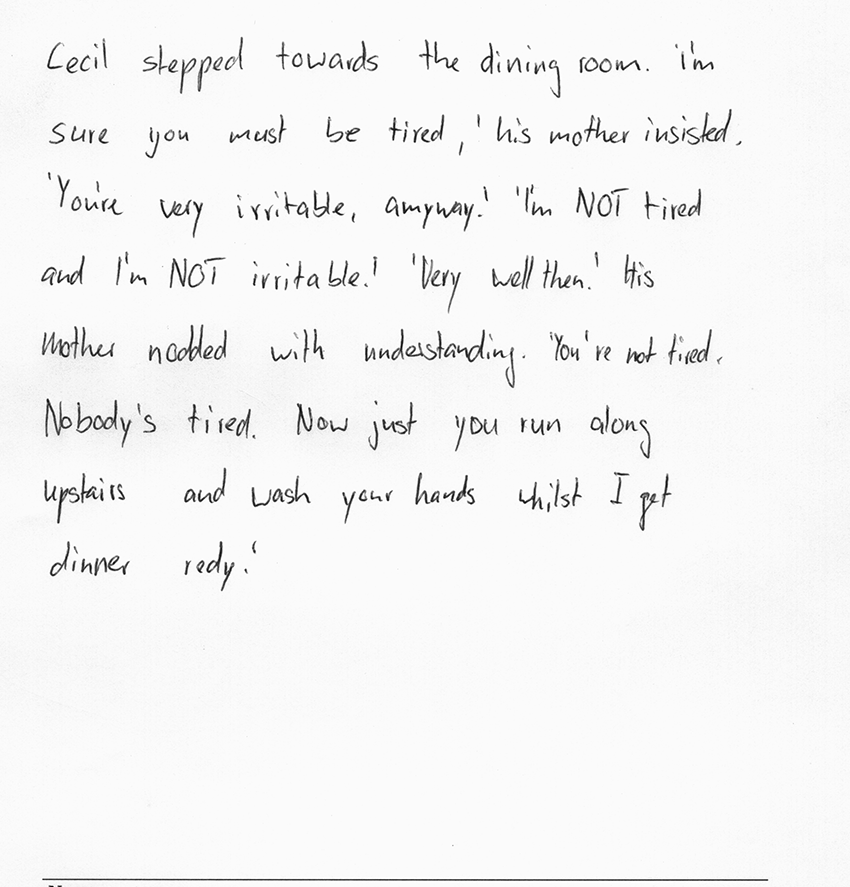 Cecil stepped towards the dining room. 'I'm
sure you must be tired,' his mother insisted.
'You're very irritable, anyway.' 'I'm NOT tired
and I'm NOT irritable.' 'Very well then.' His
mother nodded with understanding. 'You're not tired.
Nobody's tired. Now just you run along
upstairs and wash your hands whilst I get
dinner redy.'